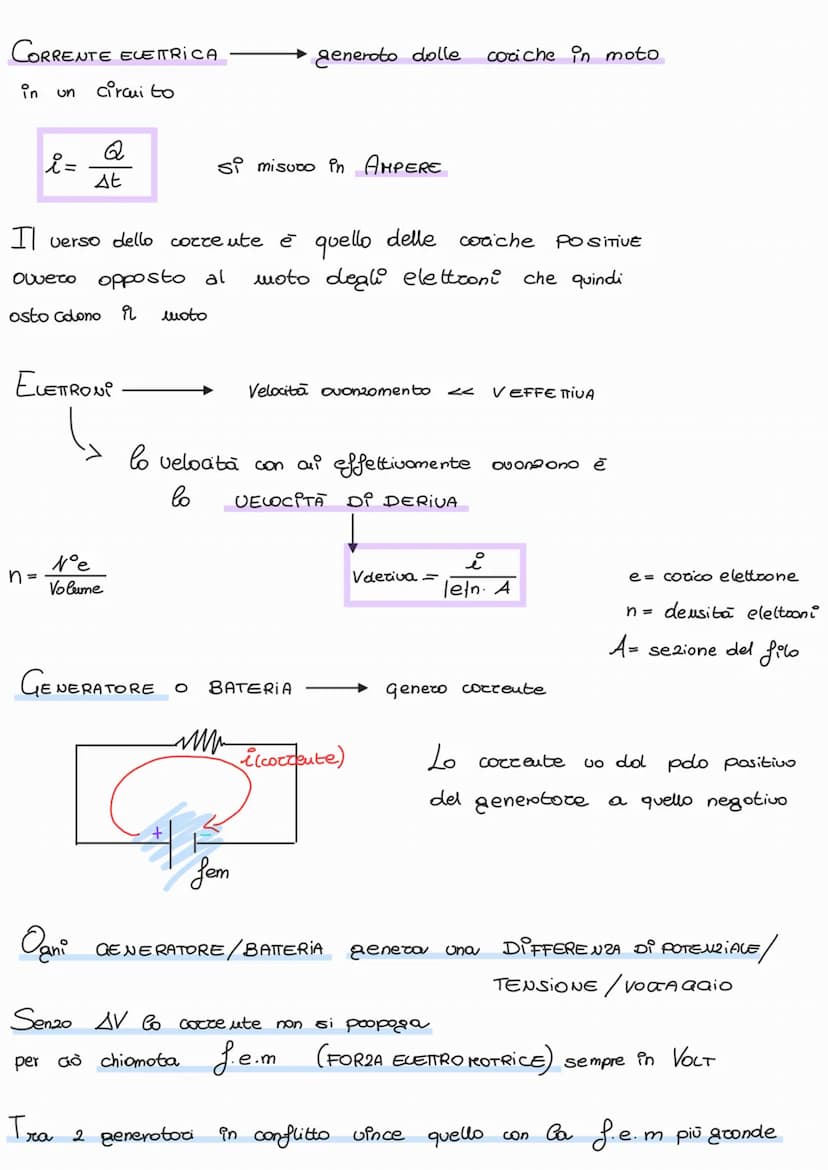 CORRENTE ELETTRICA → generata dalle cariche in moto
in un circuito
i = Q / Δt si misura in AMPERE
Il verso della corrente è quello delle cariche POSITIVE
ovvero opposto al moto degli elettroni che quindi
ostacolano il moto
ELETTRONI → Velocità avanzamento << V EFFETTIVA
la velocità con cui effettivamente avanzano è
la VELOCITÀ DI DERIVA
n = N°e / Volume
Vderiva = i / |e|n · A
e = carica elettrone
n = densità elettroni
A = sezione del filo
GENERATORE O BATERIA → genera corrente
i (corrente)
+ -
fem
La corrente va dal polo positivo
del generatore a quello negativo
Ogni GENERATORE/BATTERIA genera una DIFFERENZA DI POTENZIALE/
TENSIONE/VOLTAGGIO
Senza ΔV la corrente non si propaga
per ciò chiamata f.e.m (FORZA ELETTROMOTRICE) sempre in VOLT
Tra 2 generatori in conflitto vince quello con la f.e.m più grande